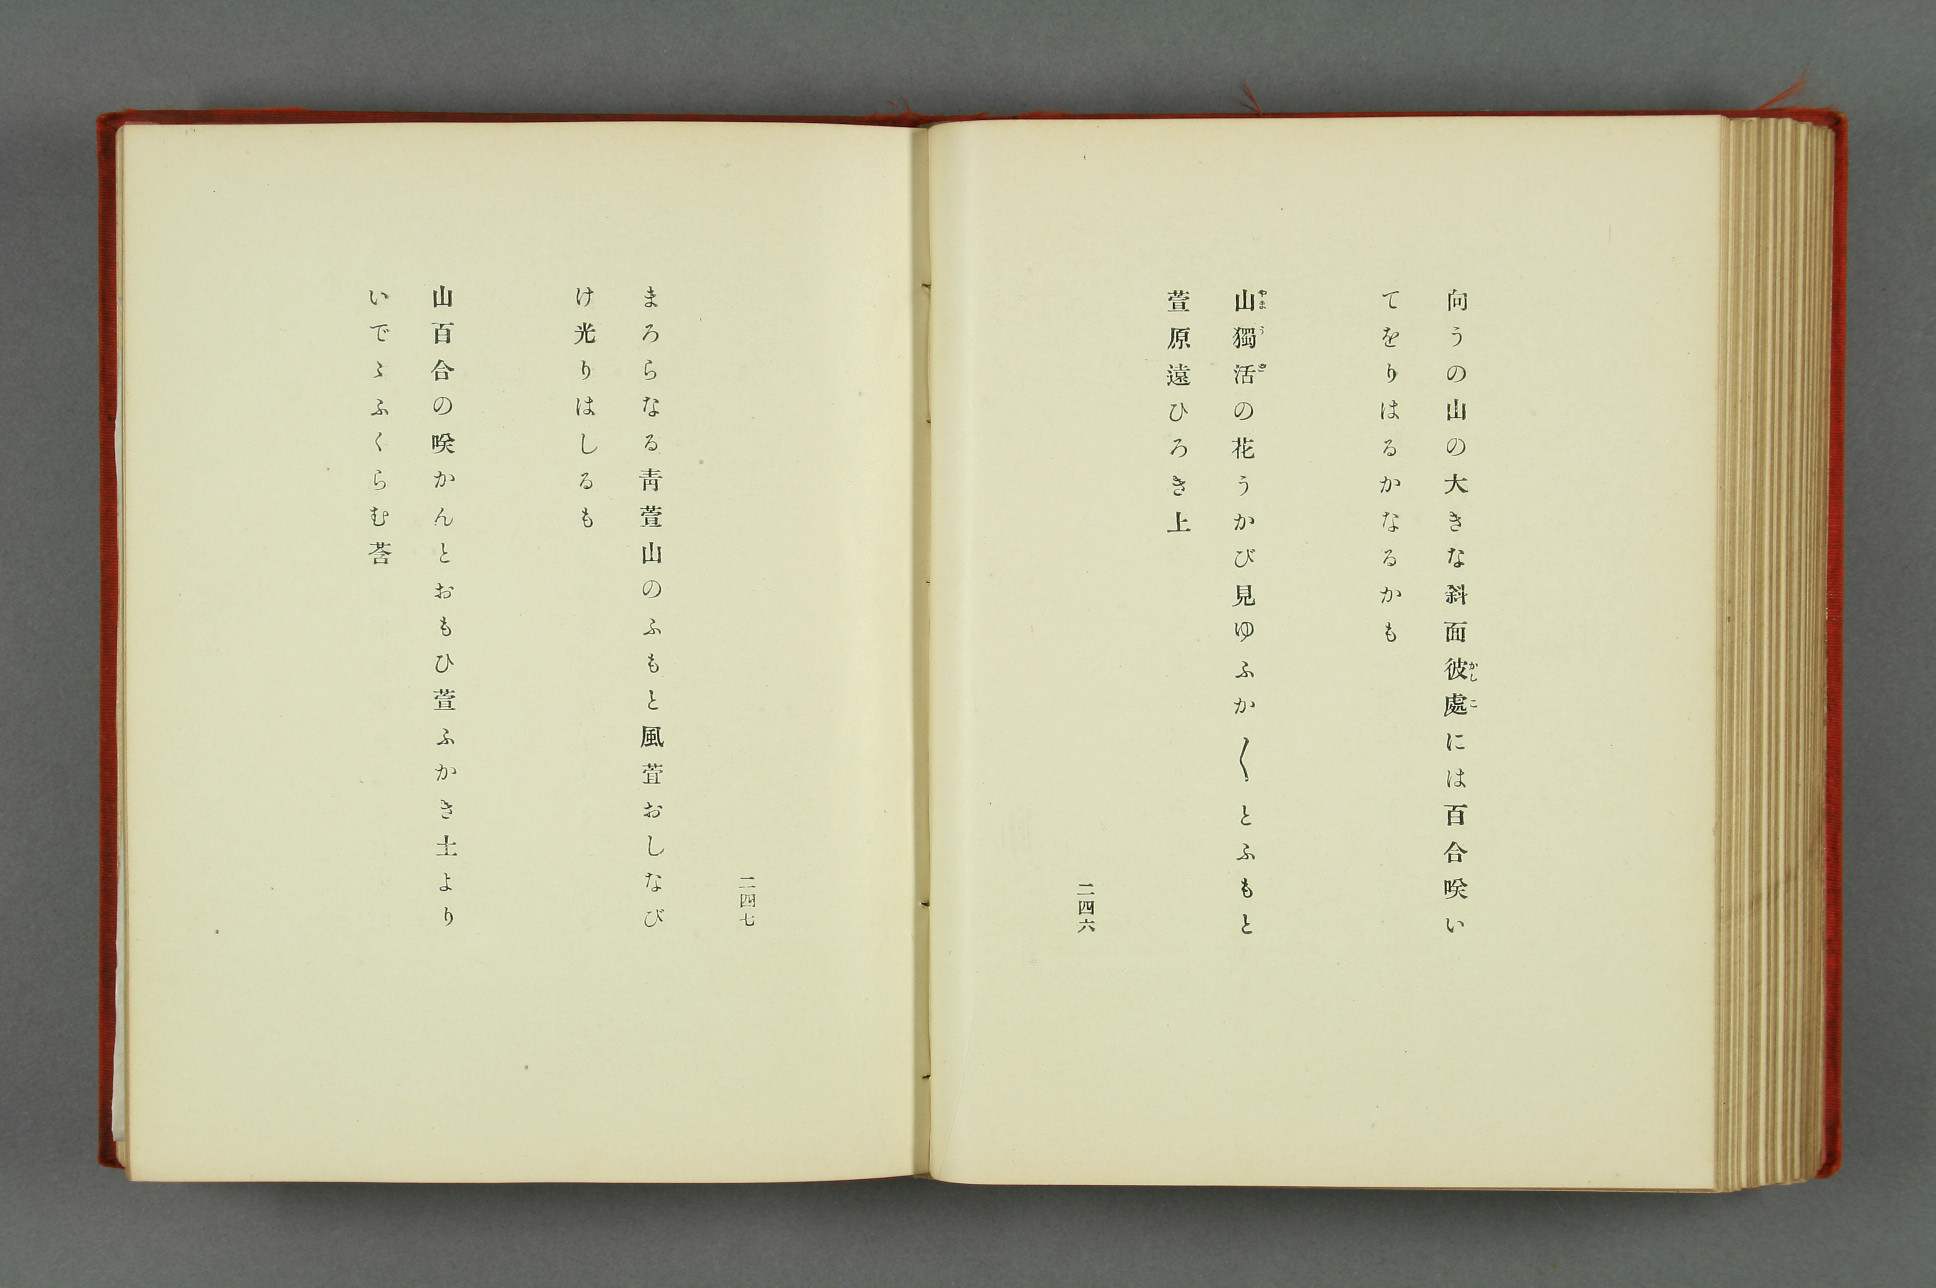 向うの山の大きな斜面彼處には百合咲い
てをりはるかなるかも
山獨活の花うかび見ゆふか〱とふもと
萱原遠ひろき上
二四六
二四七
まろらなる靑萱山のふもと風萱おしなび
け光りはしるも
山百合の咲かんとおもひ萱ふかき土より
いでゝふくらむ莟